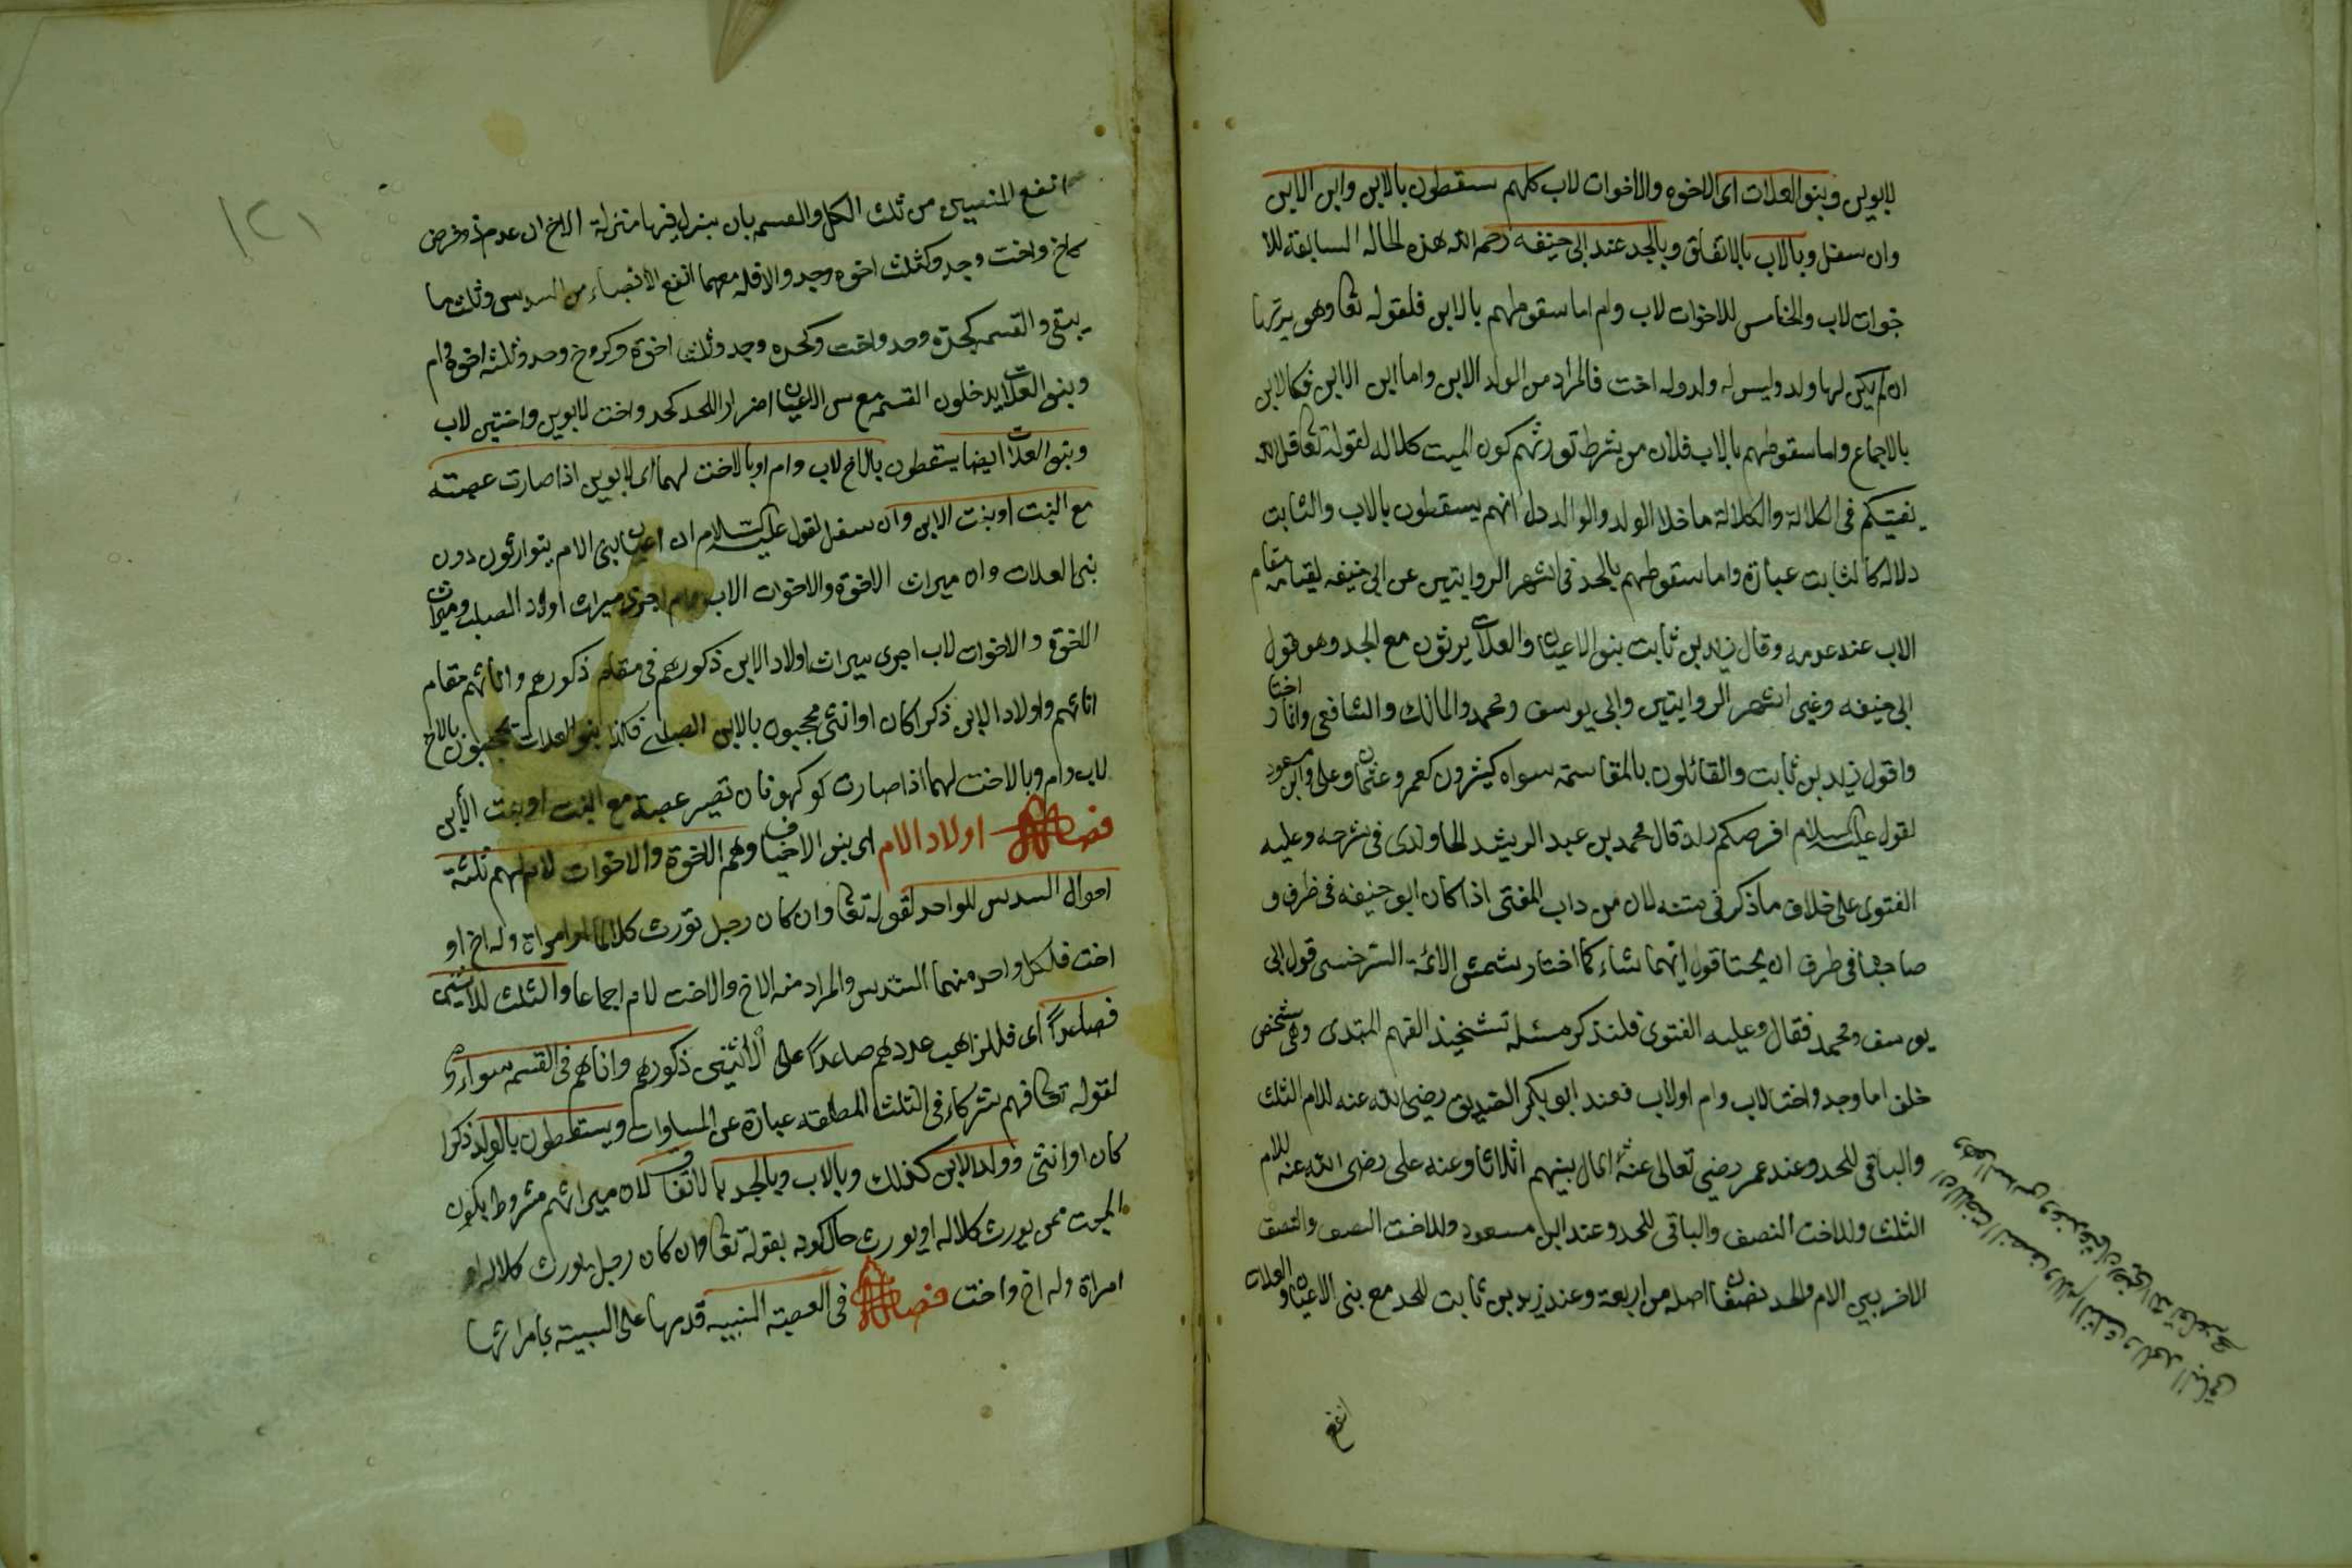 لابوين وبنو العلات اى الاخوه والاخوات لاب كلهم سقطون بالابن وابن الابن
وان سفل وبالاب بالاتفاق وبالجد عند ابى حنيفه رحمه الله هذه الحاله السابقة للا
خوات لاب والخامس للاخوات لاب وام اما سقوطهم بالابن فلقوله تعا وهو يرثها
ان لم يكن لها ولد وليس له ولد وله اخت فالمراد من الولد الابن واما ابن الابن فكالابن
بالاجماع واما سقوطهم بالاب فلان من شرط توريثهم كون الميت كلاله لقوله تعا قل الله
يفتيكم فى الكلالة والكلالة ما خلا الولد والوالد دل انهم يسقطون بالاب والثابت
دلاله كالثابت عبارة واما سقوطهم بالجد فى اشهر الروايتين عن ابى حنيفه لقيامه مقام
الاب عند عدمه وقال زيد بن ثابت بنو الاعيان والعلات يرثون مع الجد وهو قول
ابى حنيفه وغير اشهر الروايتين وابى يوسف ومحمد والمالك والشافعى
واقول زيد بن ثابت والقائلون بالمقاسمة سواه كثيرون كعمر وعثمان وعلى وابن مسعود
لقول عليه السلام افرضكم زيد قال محمد بن عبد الرشيد الحاوندى فى شرحه وعليه
الفتوى على خلاف ما ذكر فى متنه لان من داب المفتى اذا كان ابو حنيفه فى طرف و
صاحبها فى طرف ان يختا قول ايهما شاء كما اختار شمس الائمة السرخسى قول ابى
يوسف ومحمد فقال وعليه الفتوى فلنذكر مسئلة تشخيذ الفهم المبتدى وهى شخص
خلف اما وجد واختا لاب وام اولاب فعند ابو بكر الصديق رضى الله عنه للام الثلث
والباقى للجد وعند عمر رضى تعالى عنه المال بينهم اثلاثا وعنه على رضى الله عنه للام
الثلث وللاخت النصف والباقى للجد وعند ابن مسعود وللاخت النصف والنصف
الاخر بين الام والجد نصفان اصله من اربعة وعند زيد بن ثابت للجد مع بنى الاعيان والعلات
انفع
١٢١
انفع النصيبين من ثلث الكل والقسمه بان ينزل فيها منزلة الاخ ان عدم ذو فرض
كاخ واخت وجد وكثلث اخوه وجد والا فله معهما انفع الانصباء من السدس وثلث ما
يبقى والقسمه كجدة وجد واخت وكجده وجد وثلث اخوة وكزوج وجد وثلثه اخوه وام
وبنو العلات يدخلون القسمه مع بنى الاعيان اضرارا للجد كجد واخت لابوين واختين لاب
وبنو العلات ايضا يسقطون بالاخ لاب وام اوبالاخت لهما اى لابوين اذا صارت عصبته
مع البنت اوبنت الابن وان سفل لقول عليه السلام ان اعيان بنى الام يتوارثون دون
بنى العلات وان ميراث الاخوة والاخوات الاب وام اجرى ميراث اولاد الصلب وميراث
الاخوة والاخوات لاب اجرى ميراث اولاد الابن ذكورهم فى مقام ذكورهم واناثهم مقام
اناثهم واولاد الابن ذكرا كان اوانثى محجبون بالابن الصلبى فكذا بنو العلات محجبون بالاخ
لاب وام وبالاخت لهما اذا صارت كوكهو فان تصير عصبة مع البنت اوبنت الابن
فصل اولاد الام اى بنو الاخياف وهم الاخوة والاخوات لام لهم ثلثة
احوال السدس للواحد لقوله تعا وان كان رجل تورث كلالة او امراة وله اخ او
اخت فلكل واحد منهما السدس والمراد منه الاخ والاخت لام اجماعا والثلث للاثنين
فصاعدا اى فللذاهب عددهم صاعدا على الاثنين ذكورهم واناثهم فى القسم سواء
لقوله تعا فهم شركاء فى الثلث المطلقه عبارة عن المساوات ويسقطون بالولد ذكرا
كان اوانثى وولد الابن كذلك وبالاب وبالجد بالاتفاق لان ميراثهم مشروط بكون
الميت ممن يورث كلاله اويورث حال كونه بقوله تعا وان كان رجل يورث كلاله او
امراة وله اخ واخت فصل فى العصبة النسبيه قدمها على السببية